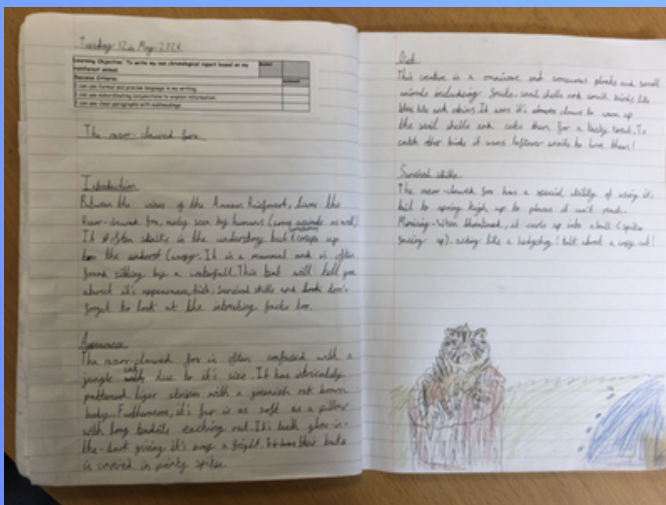 Tuesday 12th May 2026
Learning Objective: To write my non chronological report based on my
rainforest animal.
Success Criteria:
I can use formal and precise language in my writing.
I can use subordinating conjunctions to explain information.
I can use clear paragraphs with subheadings.
The razor-clawed fox
Introduction
Between the vines of the Amazon Rainforest, lives the
Razor-clawed fox, rarely seen by humans (some animals as well).
It often stalks in the understory but creeps up
the canopy. It is a mammal and is often
found sitting by a waterfall. This text will tell you
about it's appearance, diet, survival skills and don't
forget to look at the intresting facts box.
Appearance
The razor-clawed fox is often confused with a
jungle cat due to it's size. It has intricately
patterned tiger stripes with a greenish brown
body. Furthermore, it's fur is as soft as a pillow
with long out. It's teeth glow-in-
the-dark giving it's prey a fright. back
is covered in pointy spikes.
Diet
This creature is a omnivore and consumes plants and small
animals including: snails, snail shells and small birds like
blue tits and robins. It uses it's claws to open up
the snail shells and eats them for a tasty treat. To
catch other birds it uses leftover snails to lure them!
Survival skills
The razor-clawed fox has a special ability of using it's
tail to spring high up to places it can't reach.
When threatened, it curls up into a ball (spikes
up), acting like a hedgehog! talk about a cosy cat!